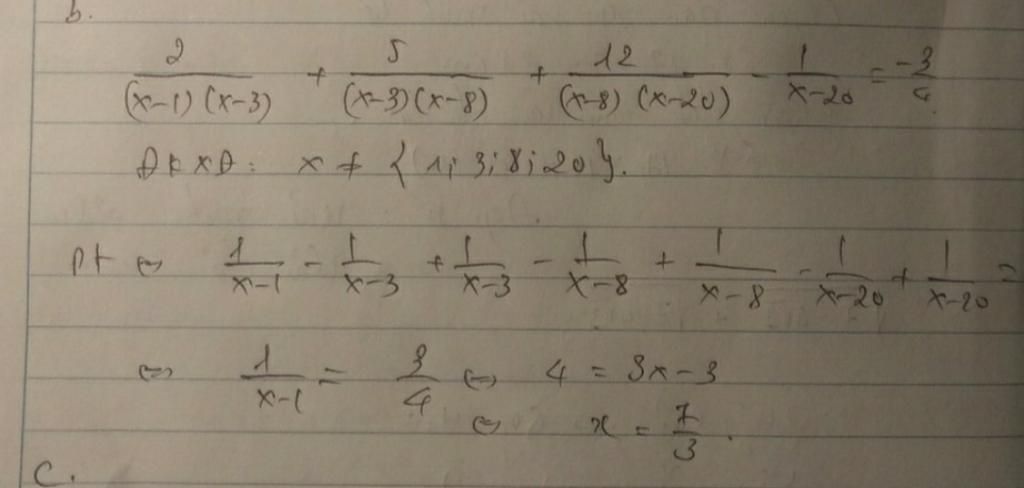 b.
2/((x-1)(x-3)) + 5/((x-3)(x-8)) + 12/((x-8)(x-20)) - 1/(x-20) = -3/4
ĐKXĐ: x ≠ {1; 3; 8; 20}.
Pt ⇔ 1/(x-1) - 1/(x-3) + 1/(x-3) - 1/(x-8) + 1/(x-8) - 1/(x-20) + 1/(x-20) =
⇔ 1/(x-1) = 3/4 ⇔ 4 = 3x-3
⇔ x = 7/3.
c.